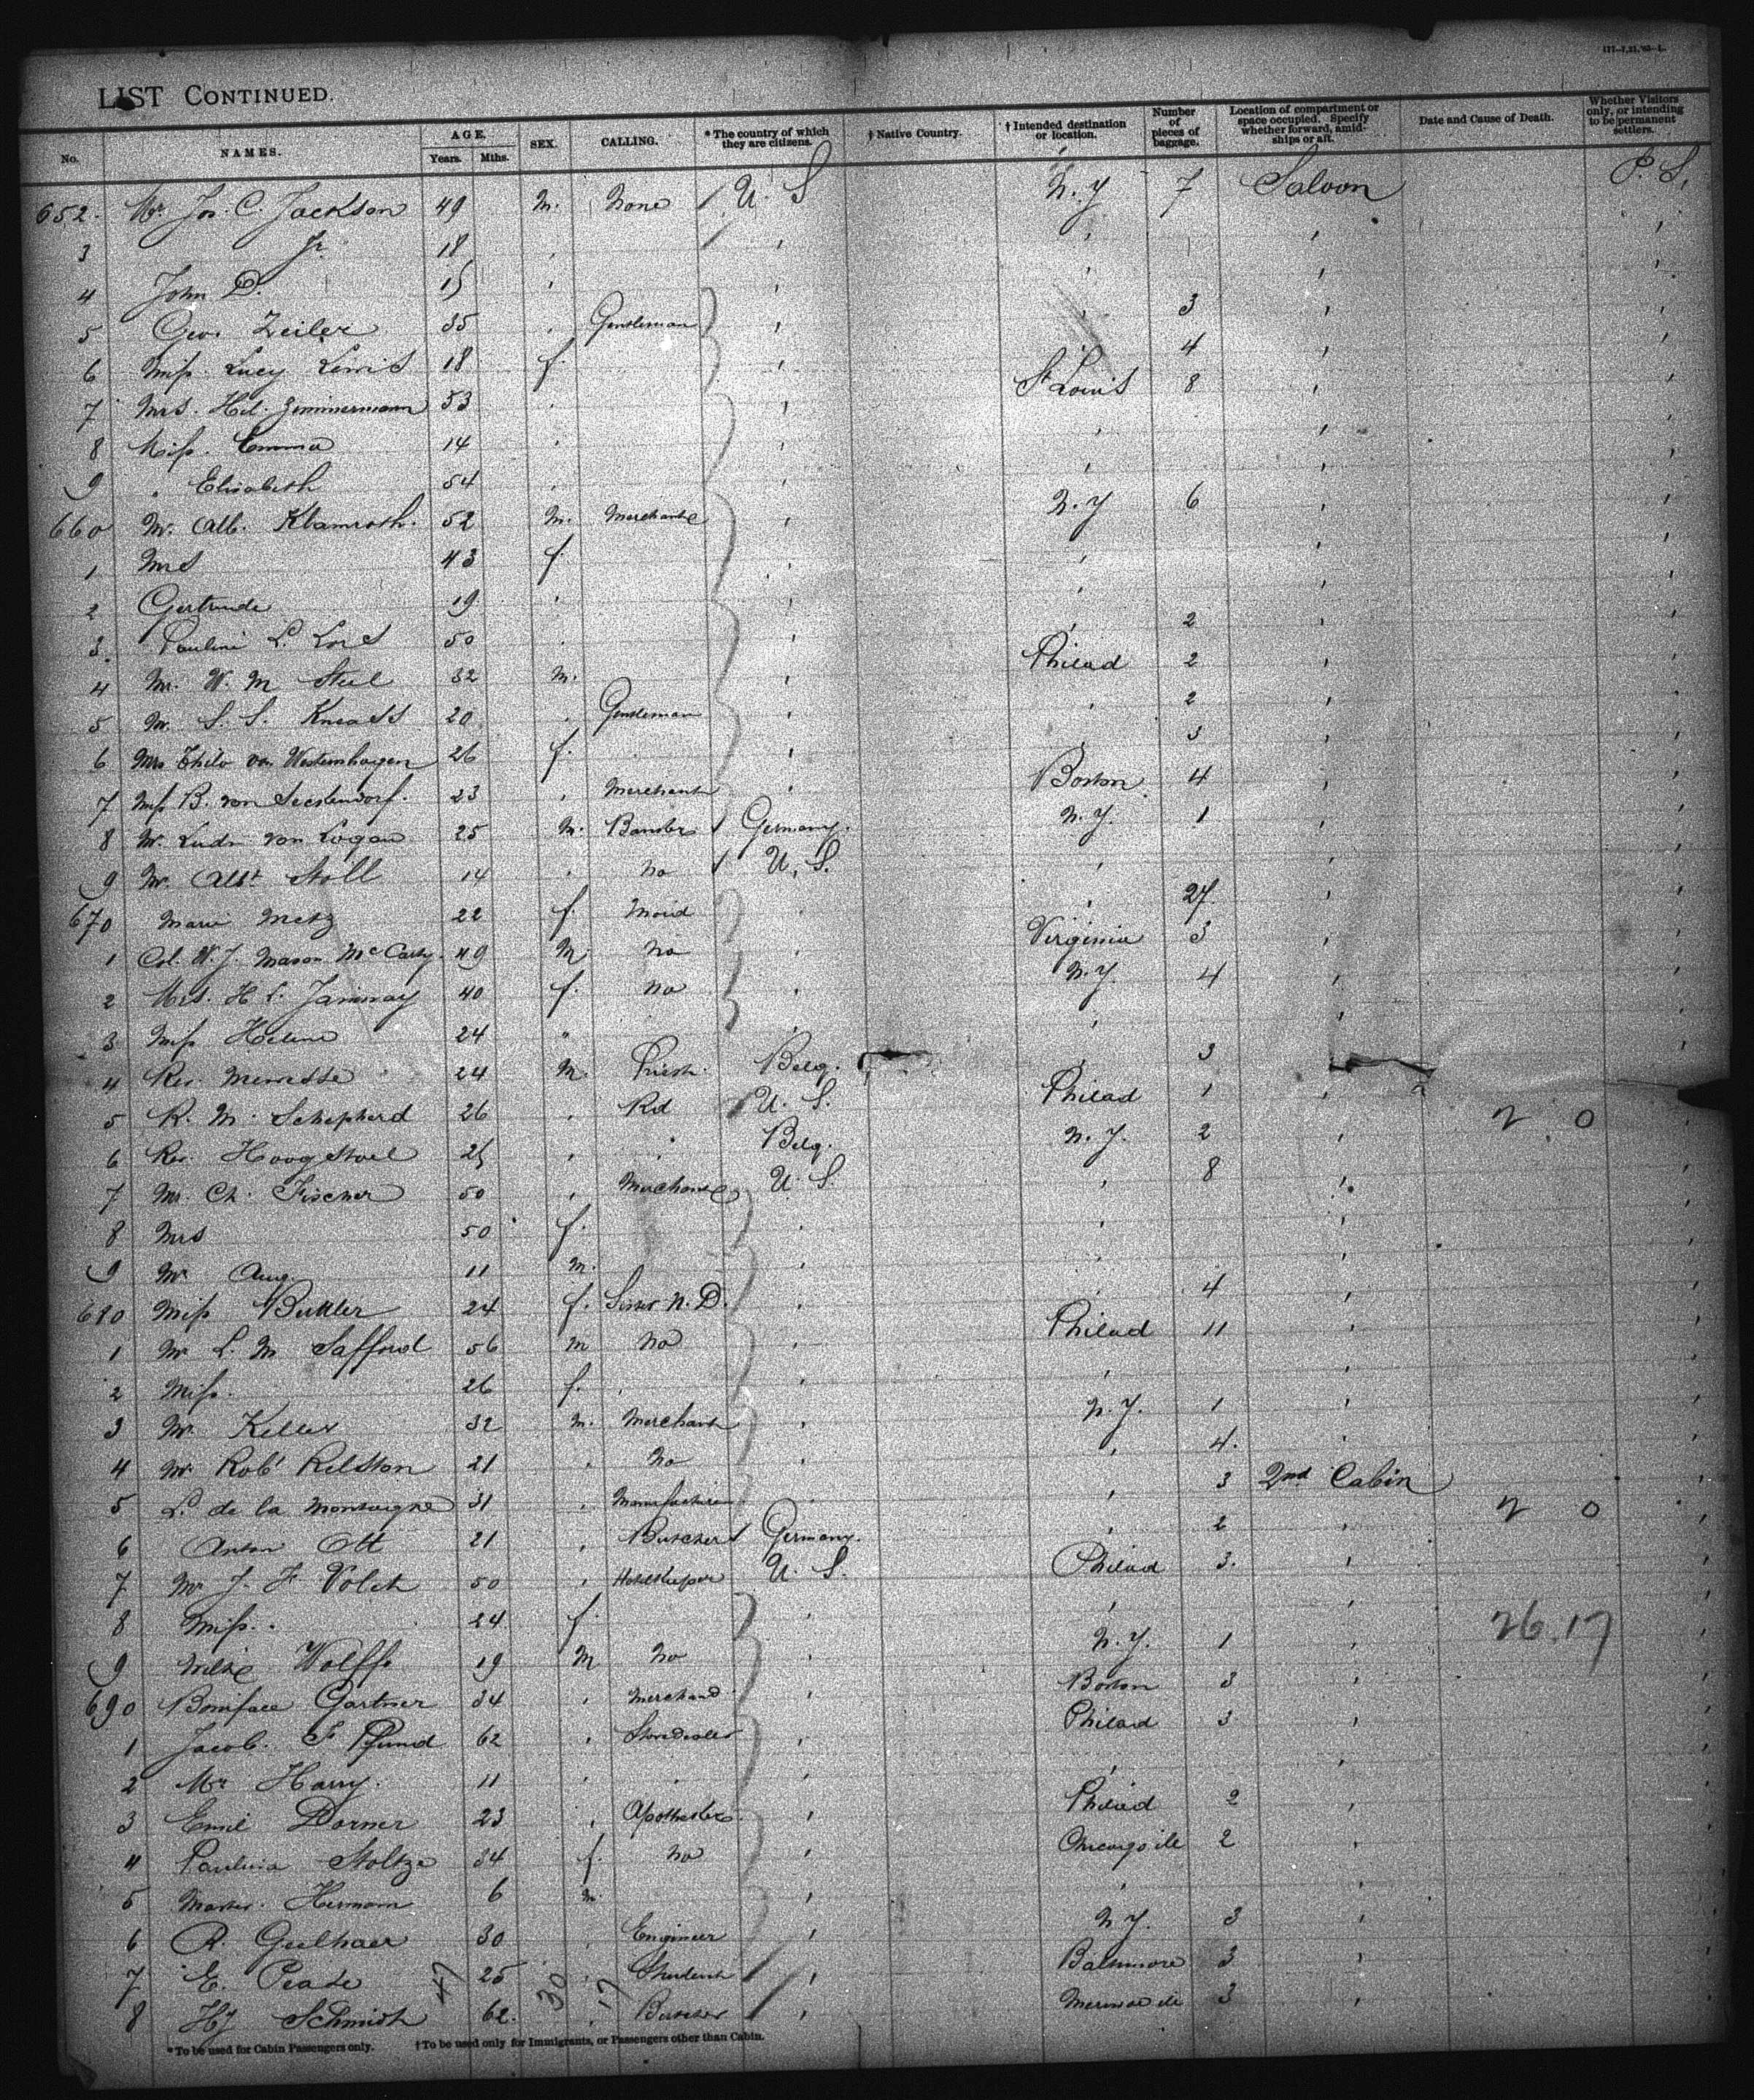 177-7,21,'93-L.
LIST CONTINUED.
No. NAMES. AGE. Years. Mths. SEX. CALLING. * The country of which they are citizens. † Native Country. † Intended destination or location. Number of pieces of baggage. Location of compartment or space occupied. Specify whether forward, amidships or aft. Date and Cause of Death. Whether Visitors only, or intending to be permanent settlers.
652. Mr Jos. C. Jackson 49 M. None U. S N. Y 7 Saloon P. S.
3 Jr. 18 " " " " "
4 John D. 15 " " " " "
5 Geo. Zeiler 35 " Gentleman " " 3 " "
6 Miss Lucy Lewis 18 f. " " 4 " "
7 Mrs. Hel. Zimmermann 53 " " St Louis 8 " "
8 Miss. Emma 14 " " " " "
9 " Elisabeth 54 " " " " "
660 Mr. Alb. Klamroth. 52 M. Merchant " N. Y 6 " "
1 Mrs 43 f. " " " "
2 Gertrude 19 " " " " "
3. Pauline L. 50 " " " 2 " "
4 Mr. W. M Steel 32 M. " Philad 2 " "
5 Mr. S. S. Kneass 20 " Gentleman " " 2 " "
6 Mrs Thilo von Westernhagen 26 f. " " 3 " "
7 Miss B. von Seckendorf. 23 " Merchant " Boston 4 " "
8 Mr. Ludr von Logau 25 M. Banker Germany. N. Y. 1 " "
9 Mr. Albt Stoll 14 " no U. S. " " "
670 Marie Metz 22 f. Maid " " 27. " "
1 Col. W. J. Mason McCarty. 49 M. no " Virginia 3 " "
2 Mrs. H L. Janiway 40 f. no " N. Y. 4 " "
3 Miss Helene 24 " " " " "
4 Rev. 24 M. Priest. Belg. " 3 " "
5 R. M. Schepherd 26 " Rd U. S. Philad 1 "
6 Rev. Hoogstoel 25 " " Belg. N. Y. 2 " 2 0 "
7 Mr. Ch. Fischer 50 " Merchant U. S " 8 " "
8 Mrs 50 f. " " " "
9 Mr Aug. 11 M. " " " "
680 Miss Buttler 24 f. Sister N. D. " " 4 " "
1 Mr L. M Safford 56 M no " Philad 11 " "
2 Miss. 26 f. " " " " "
3 Mr. Keller 32 M. Merchant " N. Y. 1 " "
4 Mr. Robt Relston 21 " no " " 4. " "
5 L. de la Montaigne 31 " " " 3 2nd Cabin "
6 Anton Ott 21 " Butcher Germany. " 2 " 2 0 "
7 Mr J. F Volck 50 " Hotelkeeper U. S. Philad 3. " "
8 Miss. 24 f. " " " "
9 Wolff 19 M no " N. Y. 1 " 26.17 "
690 Boniface Gartner 34 " Merchand " Boston 3 " "
1 Jacob. F Pfund 62 " " Philad 3 " "
2 Mr Harry. 11 " " " " " "
3 Emil Dorner 23 " Apotheker " Philad 2 " "
4 Paulina Stoltze 34 f. no " Chicago ill 2 " "
5 Master. Hermann 6 M. " " " "
6 R. Geelhaer 30 " Engineer " N. Y. 3 " "
7 E. Pease 25 " Student " Baltimore 3 " "
8 Hy Schmidt 62. " Butcher " 3 " "
47 30 17
* To be used for Cabin Passengers only. † To be used only for Immigrants, or Passengers other than Cabin.